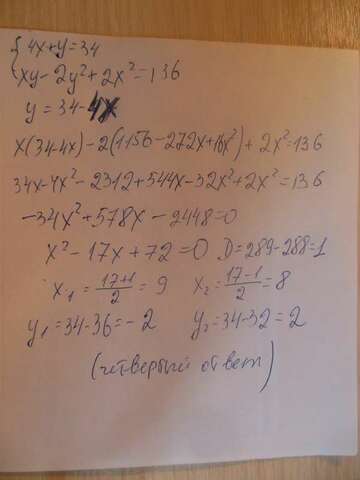 { 4x+y=34
xy-2y²+2x²=136
y=34-4x
x(34-4x)-2(1156-272x+16x²)+2x²=136
34x-4x²-2312+544x-32x²+2x²=136
-34x²+578x-2448=0
x²-17x+72=0 D=289-288=1
x₁=(17+1)/2=9 x₂=(17-1)/2=8
y₁=34-36=-2 y₂=34-32=2
(четверый ответ)